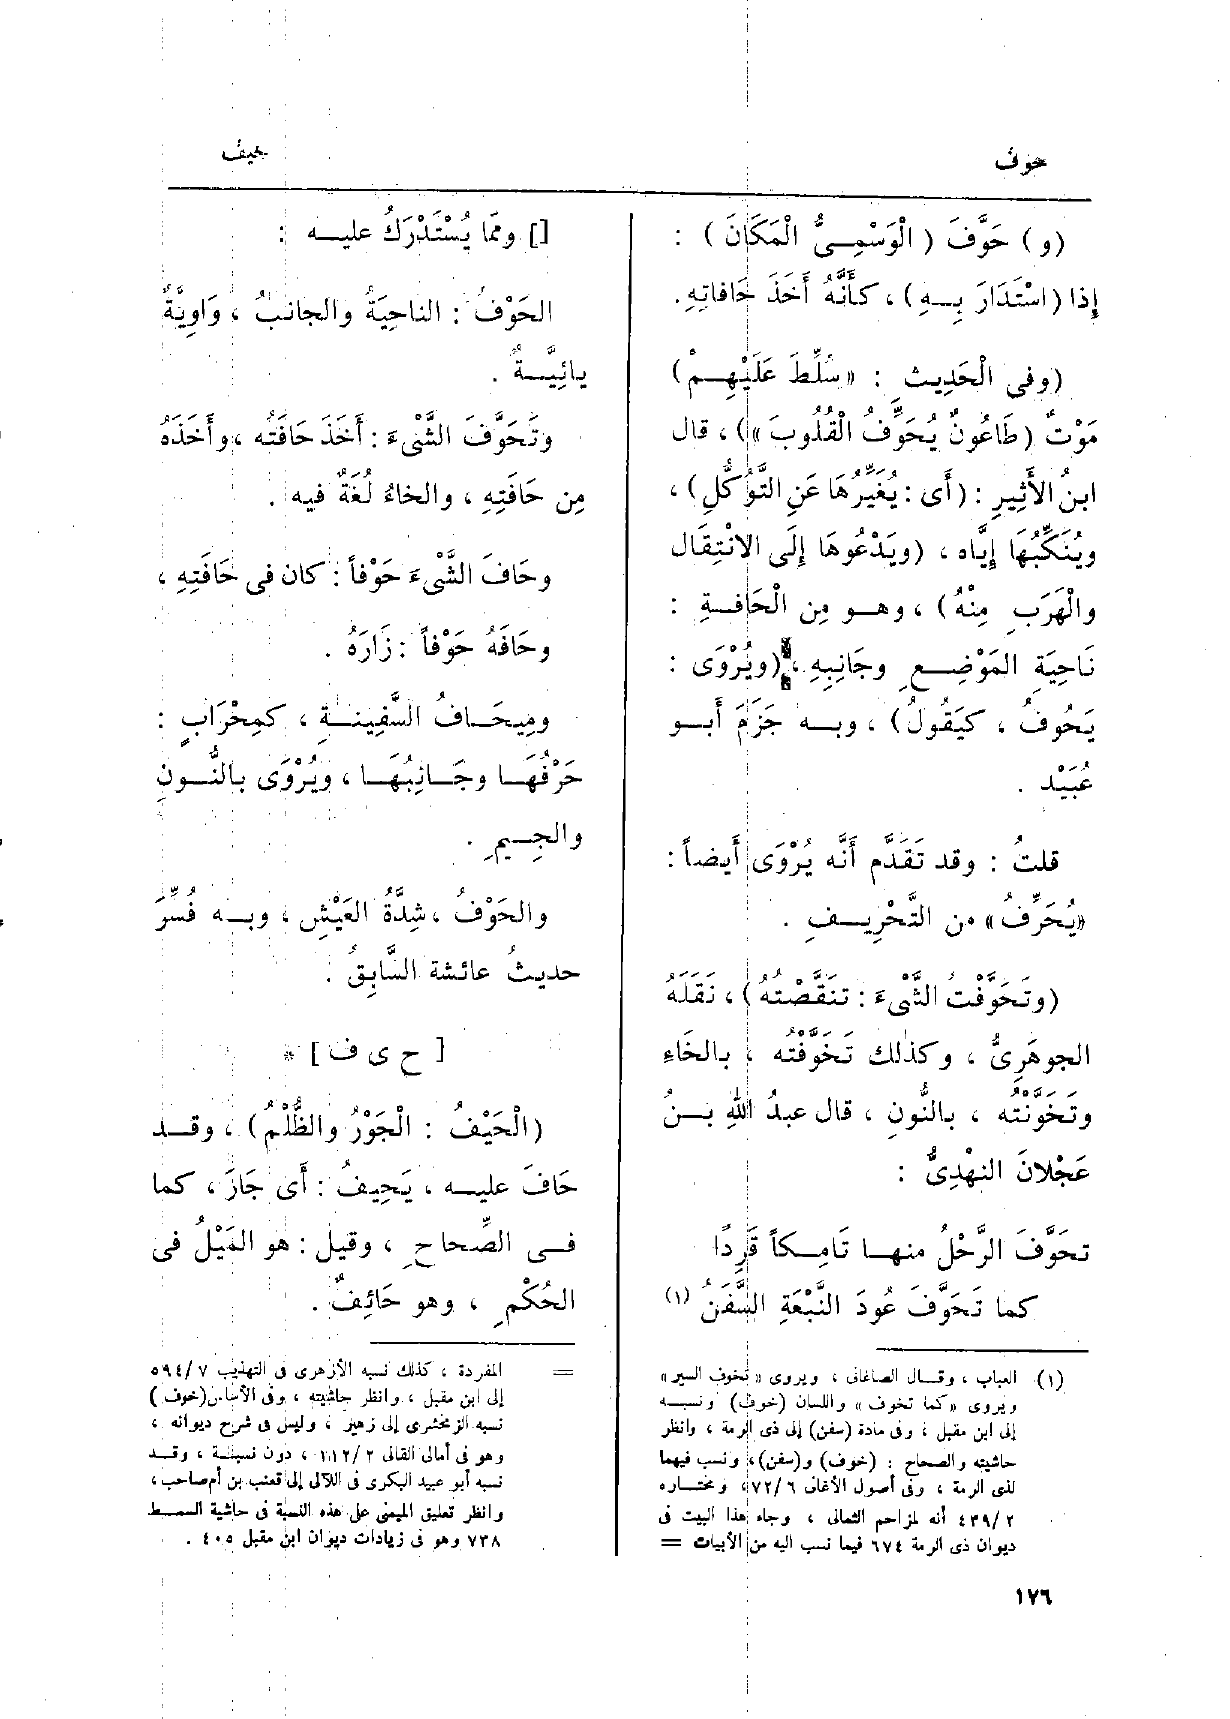 حوف
حيف
(و) حَوَّفَ (الْوَسْمِىُّ الْمَكَانَ) :
إِذا (اسْتَدَارَ بِهِ) ، كأَنَّهُ أَخَذَ حَافاتِهِ.
(وفى الْحَدِيثِ : «سُلِّطَ عَلَيْهِمْ)
مَوْتٌ (طَاعُونٌ يُحَوِّفُ الْقُلُوبَ») ، قال
ابنُ الأَثِيرِ : (أَى : يُغَيِّرُهَا عَنِ التَّوَكُّلِ) ،
ويُنَكِّبُهَا إِيَّاه ، (ويَدْعُوهَا إِلَى الانْتِقَال
والْهَرَبِ مِنْهُ) ، وهو مِن الْحَافةِ :
نَاحِيَةِ المَوْضِعِ وجَانِبِهِ ، (ويُرْوَى :
يَحُوفُ ، كيَقُولُ) ، وبه جَزَمَ أَبو
عُبَيْد .
قلتُ : وقد تَقَدَّم أَنَّه يُرْوَى أَيضاً :
«يُحَرِّفُ» من التَّحْرِيفِ .
(وتَحَوَّفْتُ الشَّىْءَ : تَنَقَّصْتهُ) ، نَقَلَهُ
الجوهَرِىُّ ، وكذٰلك تَخَوَّفْته ، بالخَاءِ
وتَخَوَّنْته ، بالنُّونِ ، قال عبدُ اللهِ بنُ
عَجْلانَ النهْدِىُّ :
تحَوَّفَ الرَّحْلُ منها تَامِكاً قَرِدًا
كما تَحَوَّفَ عُودَ النَّبْعَةِ السَّفَنُ (١)
(١) العباب ، وقال الصاغانى ، ويروى «تخوف السير»
ويروى «كما تخوف» واللسان (خوف) ونسبه
إلى ابن مقبل ، وفى مادة (سفن) إلى ذى الرمة ، وانظر
حاشيته والصحاح : (خوف) و(سفن) ، ونسب فيهما
لذى الرمة ، وفى أصول الأغانى ٧٢/٦ ، ومختاره
٤٣٩/٢ أنه لمزاحم الثمالى ، وجاء هذا البيت فى
ديوان ذى الرمة ٦٧٤ فيما نسب اليه من الأبيات =
[] ومِمّا يُسْتَدْرَكُ عليه :
الحَوْفُ : الناحِيَةُ والجانبُ ، وَاوِيَّةٌ
يائِيَّةٌ .
وتَحَوَّفَ الشَّىْءَ : أَخَذَ حَافَتَه ، وأَخَذَهُ
مِن حَافَتِهِ ، والخاءُ لُغَةٌ فيه .
وحَافَ الشَّىْءَ حَوْفاً : كان فى حَافَتِهِ ،
وحَافَهُ حَوْفاً : زَارَهُ .
ومِيحَافُ السَّفِينَةِ ، كمِحْرَابٍ :
حَرْفُهَا وجَانِبُهَا ، ويُرْوَى بالنُّونِ
والجِيمِ .
والحَوْفُ ، شِدَّةُ العَيْشِ ، وبه فُسِّرَ
حديثُ عائشة السَّابِقُ .
[ ح ى ف ] *
(الْحَيْفُ : الْجَوْرُ والظُّلْمُ) ، وقد
حَافَ عليه ، يَحِيفُ : أَى جَارَ ، كما
فى الصِّحاحِ ، وقيل : هو المَيْلُ فى
الحُكْمِ ، وهو حَائِفٌ .
= المفردة ، كذلك نسبه الأزهرى فى التهذيب ٥٩٤/٧
إلى ابن مقبل ، وانظر حاشيته ، وفى الأساس (خوف)
نسبه الزمخشرى إلى زهير ، وليس فى شرح ديوانه ،
وهو فى أمالى القالى ١١٢/٢ ، دون نسبة ، وقد
نسبه أبو عبيد البكرى فى اللآلى إلى قعنب بن أم صاحب ،
وانظر تعليق الميمنى على هذه النسبة فى حاشية السمط
٧٣٨ وهو فى زيادات ديوان ابن مقبل ٤٠٥ .
١٧٦